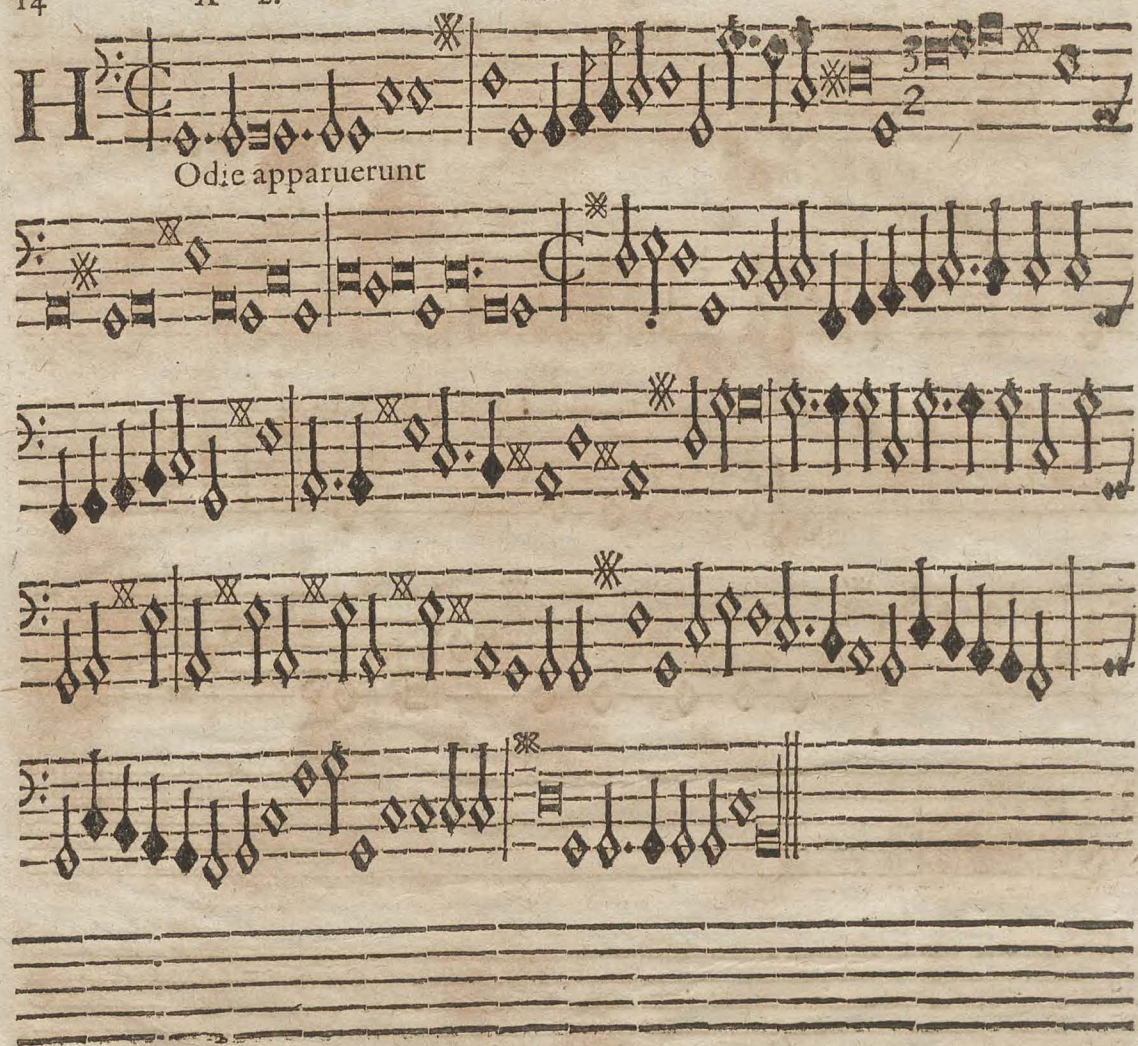 14 A 2.
H
3
2
Odie apparuerunt